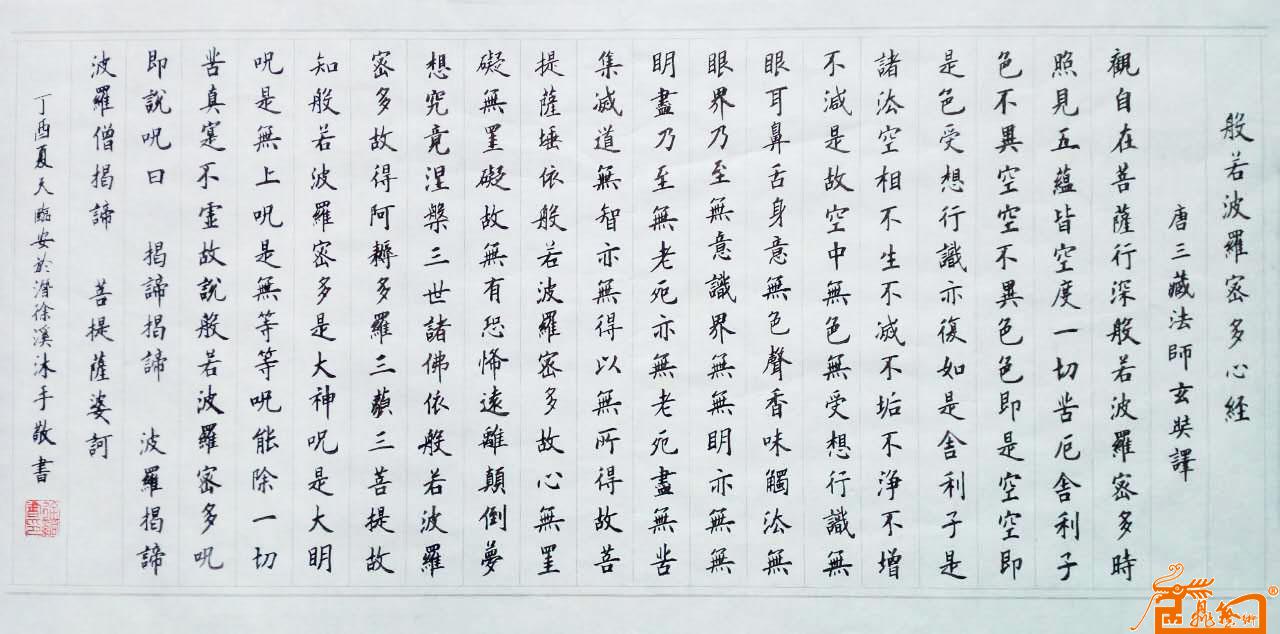 般若波羅密多心経
唐三藏法師玄奘譯
觀自在菩薩行深般若波羅密多時
照見五蘊皆空度一切苦厄舍利子
色不異空空不異色色即是空空即
是色受想行識亦復如是舍利子是
諸法空相不生不滅不垢不淨不增
不減是故空中無色無受想行識無
眼耳鼻舌身意無色聲香味觸法無
眼界乃至無意識界無無明亦無無
明盡乃至無老死亦無老死盡無苦
集滅道無智亦無得以無所得故菩
提薩埵依般若波羅密多故心無罣
礙無罣礙故無有恐怖遠離顛倒夢
想究竟涅槃三世諸佛依般若波羅
密多故得阿耨多羅三藐三菩提故
知般若波羅密多是大神呪是大明
呪是無上呪是無等等呪能除一切
苦真寔不虛故說般若波羅密多呪
即說呪曰 揭諦揭諦 波羅揭諦
波羅僧揭諦 菩提薩婆訶
丁酉夏天臨安於潛徐溪沐手敬書